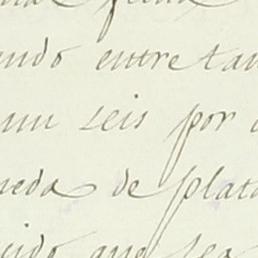 endo entre tan
un seis por c
neda de plata
cido que sea